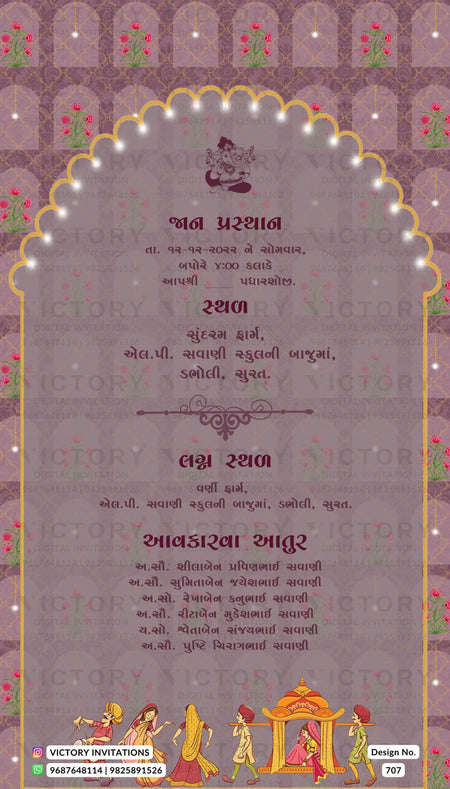 જાન પ્રસ્થાન
તા. ૧૨-૧૨-૨૦૨૨ ને સોમવાર,
બપોરે ૪:૦૦ કલાકે
આપશ્રી ____ પધારશોજી.
સ્થળ
સુંદરમ ફાર્મ,
એલ.પી. સવાણી સ્કુલની બાજુમાં,
ડભોલી, સુરત.
લગ્ન સ્થળ
વર્ણી ફાર્મ,
એલ.પી. સવાણી સ્કુલની બાજુમાં, ડભોલી, સુરત.
આવકારવા આતુર
અ.સૌ. શીલાબેન પ્રવિણભાઈ સવાણી
અ.સૌ. સુમિતાબેન જયેશભાઈ સવાણી
અ.સૌ. રેખાબેન કનુભાઈ સવાણી
અ.સૌ. રીટાબેન મુકેશભાઈ સવાણી
ચ.સૌ. શ્વેતાબેન સંજયભાઈ સવાણી
અ.સૌ. પુષ્ટિ ચિરાગભાઈ સવાણી
VICTORY INVITATIONS
9687648114 | 9825891526
Design No.
707